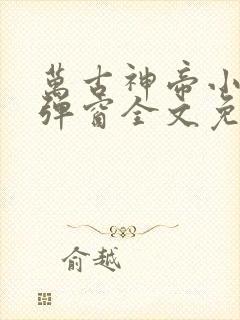 萬古神帝小
彈窗全文免
俞越